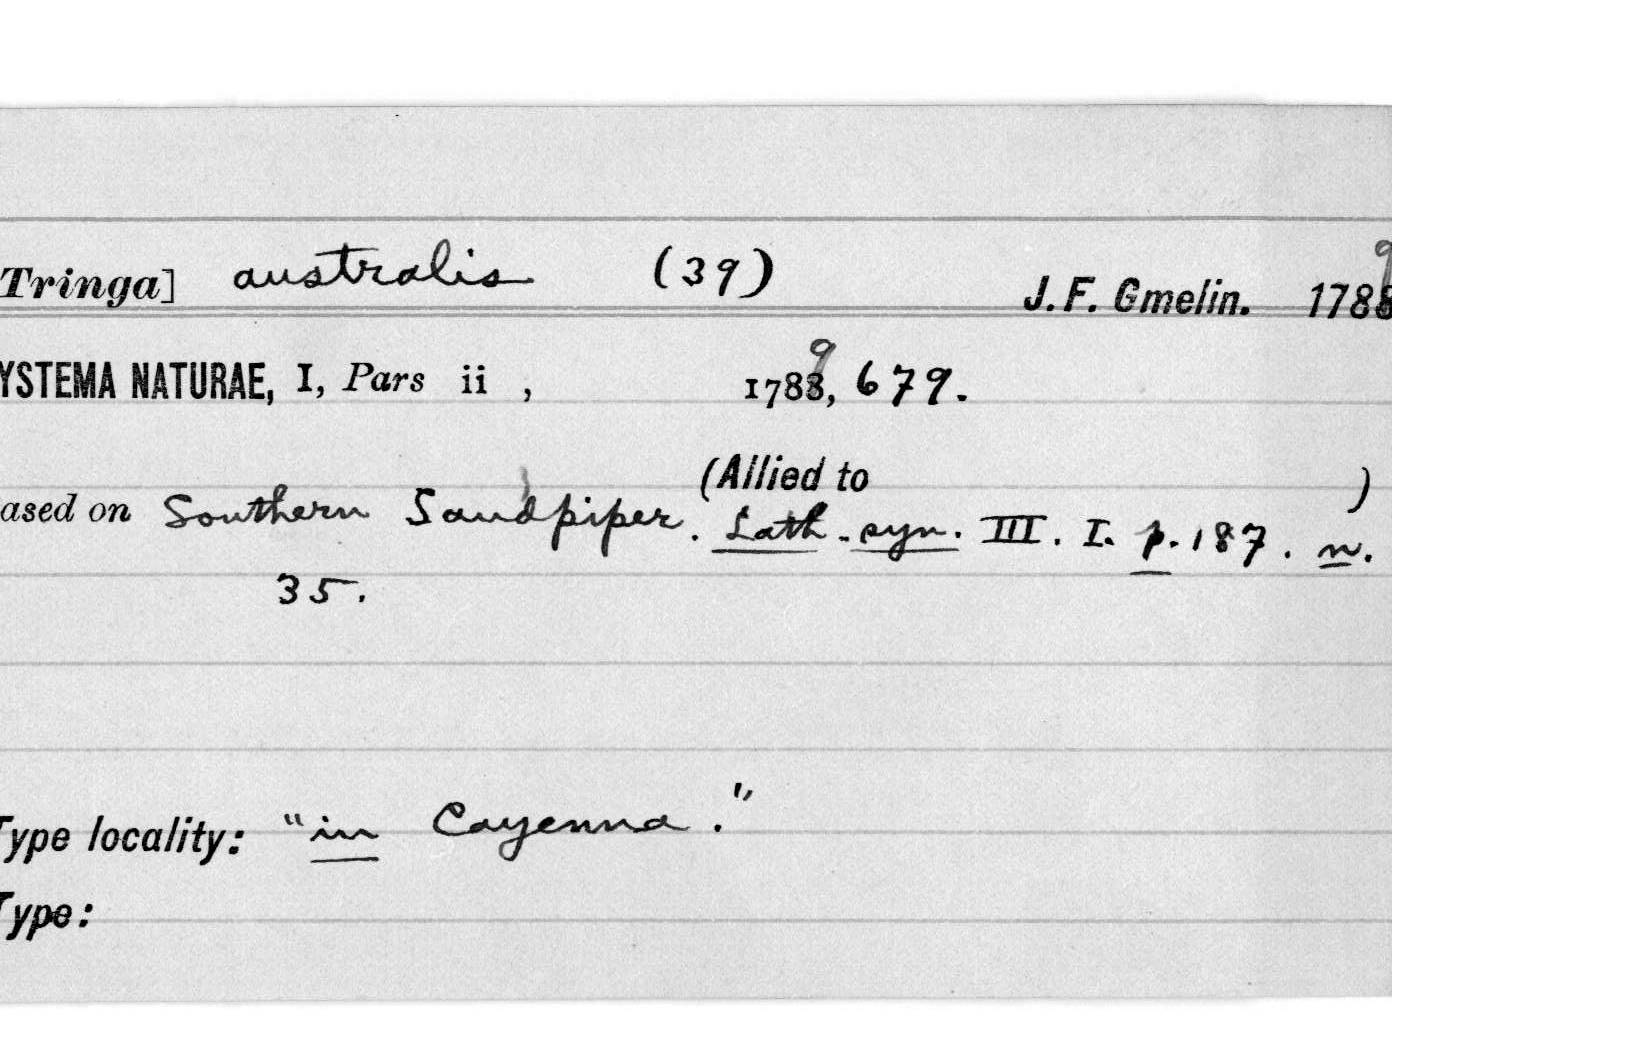 Tringa] australis (39) J. F. Gmelin. 1789
YSTEMA NATURAE, I, Pars ii , 1789, 679.
(Allied to )
ased on Southern Sandpiper. Lath. syn. III. I. p. 187. n.
35.
Type locality: "in Cayenna."
Type: